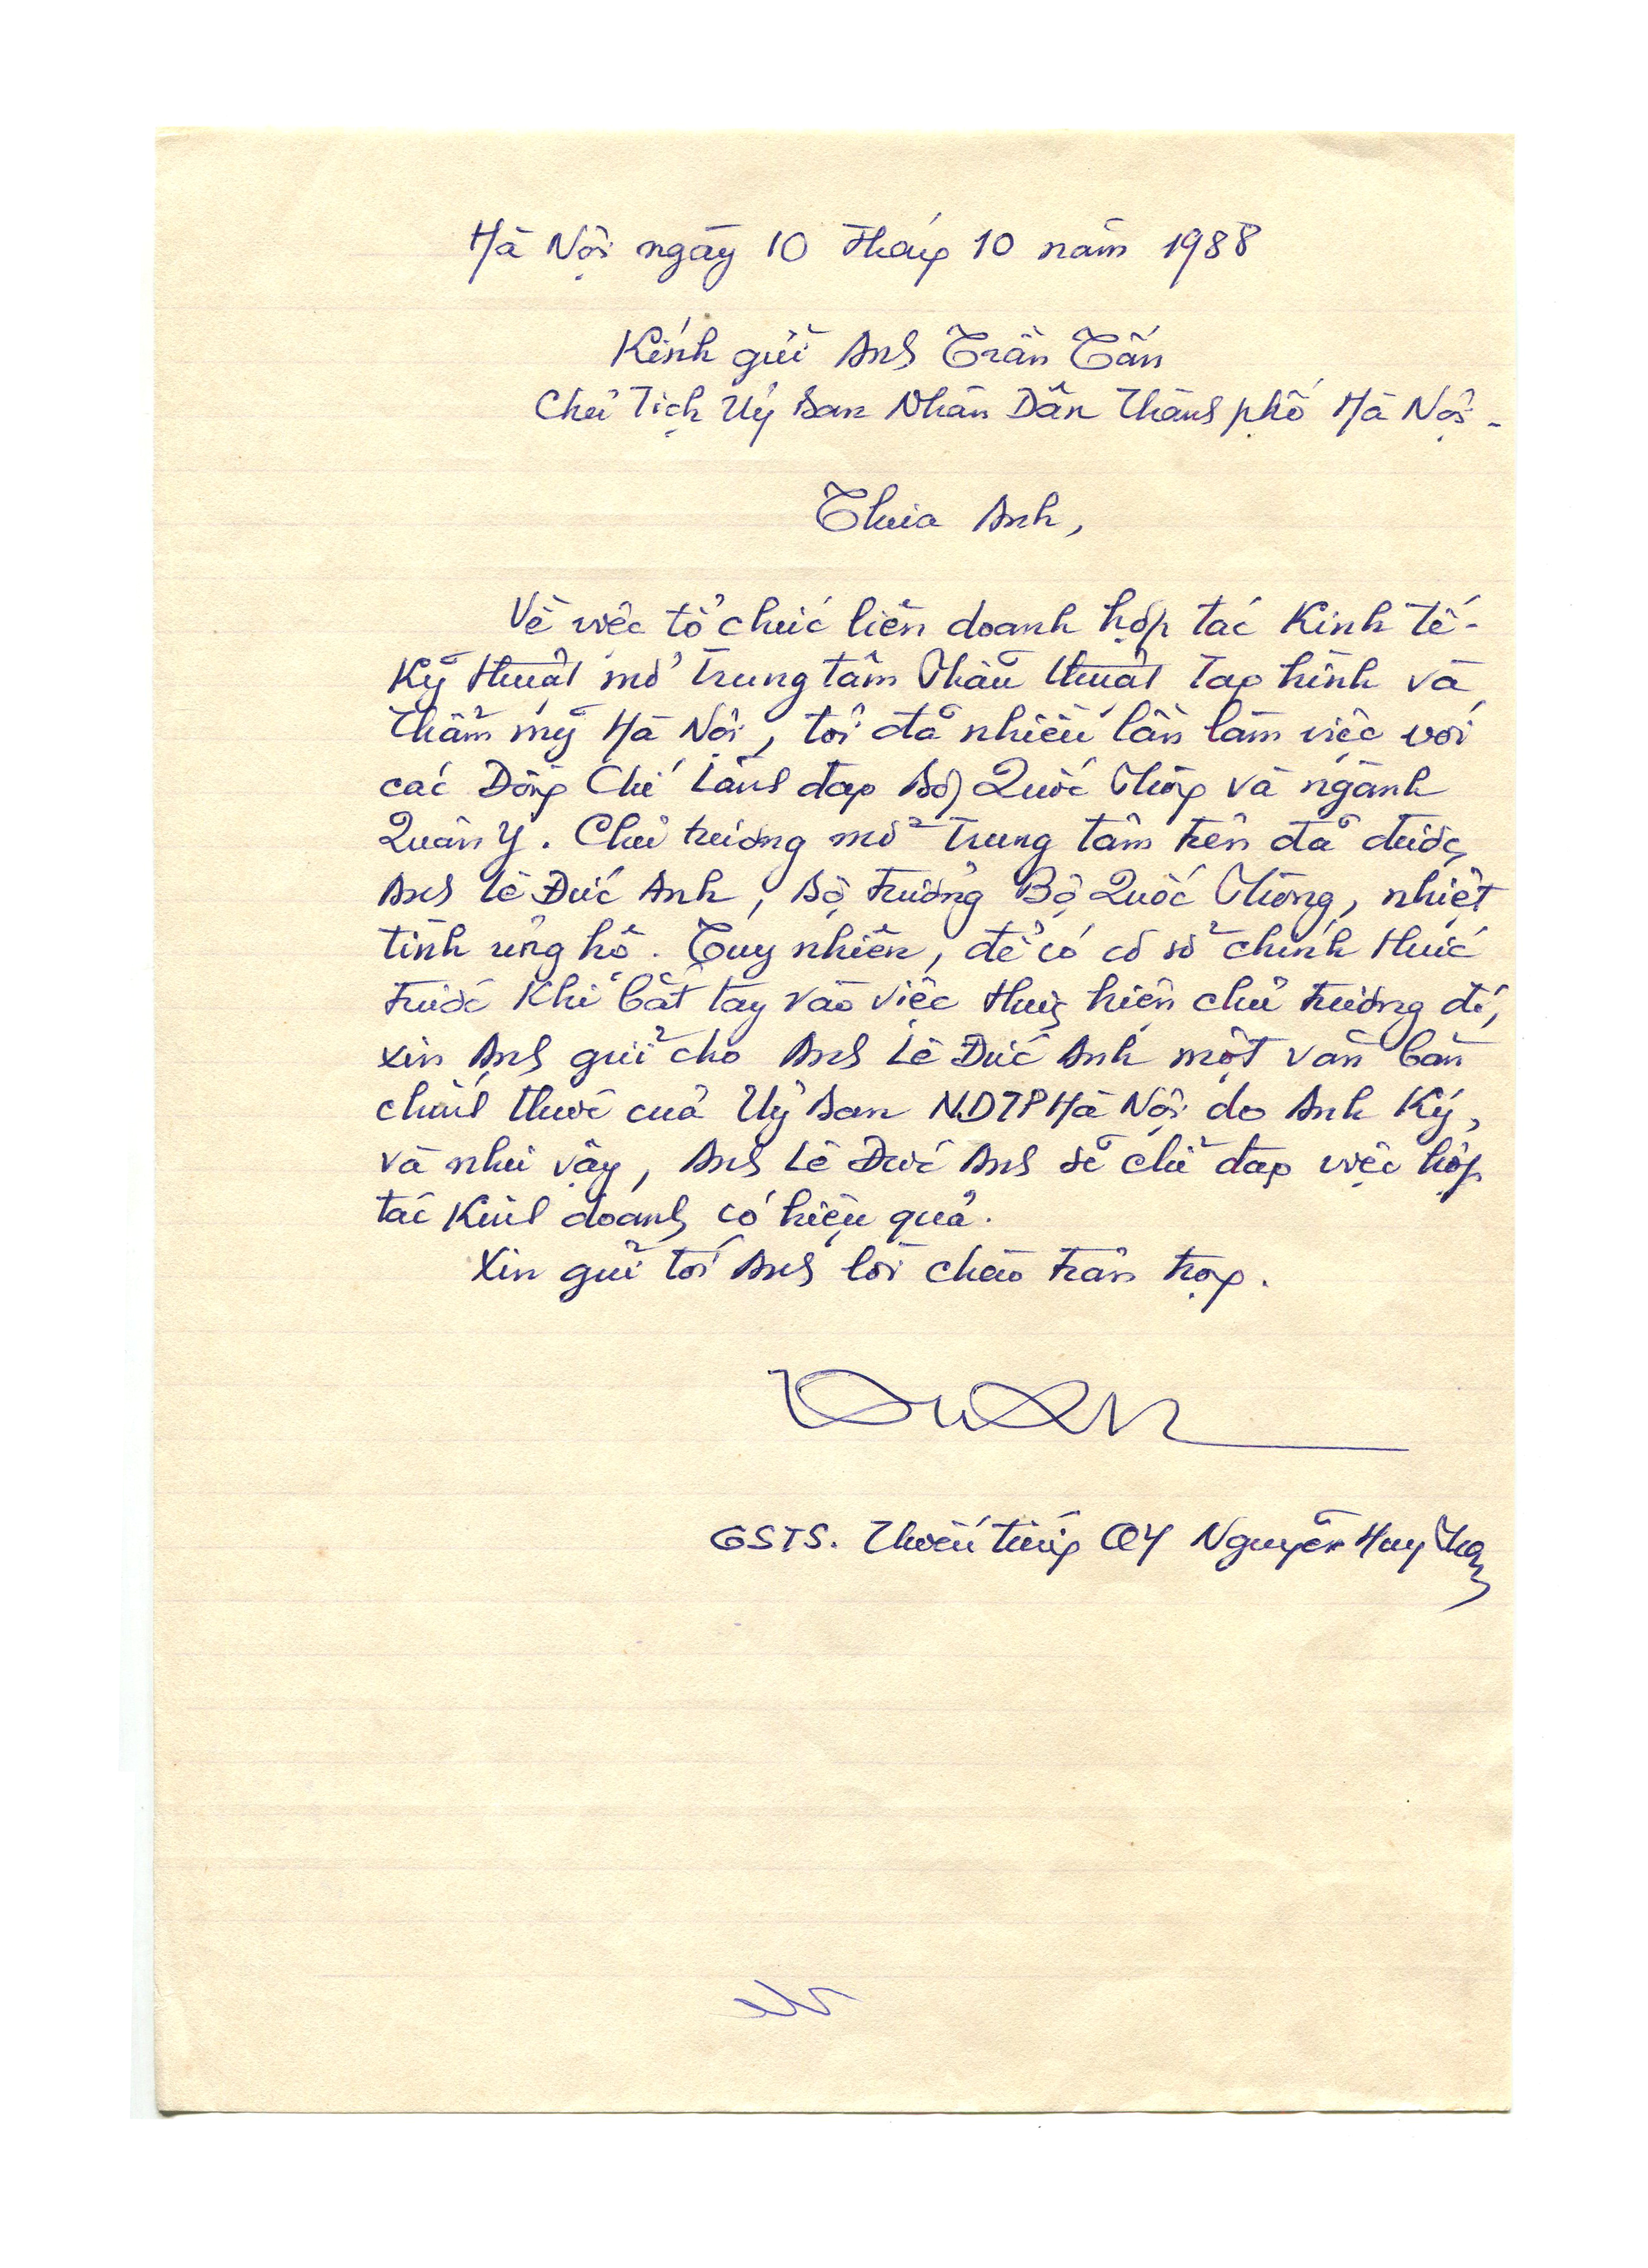 Hà Nội ngày 10 tháng 10 năm 1988
Kính gửi Anh Trần Tấn
Chủ Tịch Uỷ Ban Nhân Dân Thành phố Hà Nội.
Thưa Anh,
Về việc tổ chức liên doanh hợp tác Kinh tế-
Kỹ thuật mở Trung tâm Phẫu thuật Tạo hình và
Thẩm mỹ Hà Nội, tôi đã nhiều lần làm việc với
các Đồng Chí Lãnh đạo Bộ Quốc Phòng và ngành
Quân Y. Chủ trương mở Trung tâm trên đã được
Anh Lê Đức Anh, Bộ trưởng Bộ Quốc Phòng, nhiệt
tình ủng hộ. Tuy nhiên, để có cơ sở chính thức
trước khi bắt tay vào việc thực hiện chủ trương đó,
xin Anh gửi cho Anh Lê Đức Anh một văn bản
chính thức của Uỷ Ban NDTP Hà Nội do Anh Ký,
và như vậy, Anh Lê Đức Anh sẽ chỉ đạo việc hợp
tác Kinh doanh có hiệu quả.
Xin gửi tới Anh lời chào trân trọng.
GSTS. Thiếu tướng QY Nguyễn Huy Phan